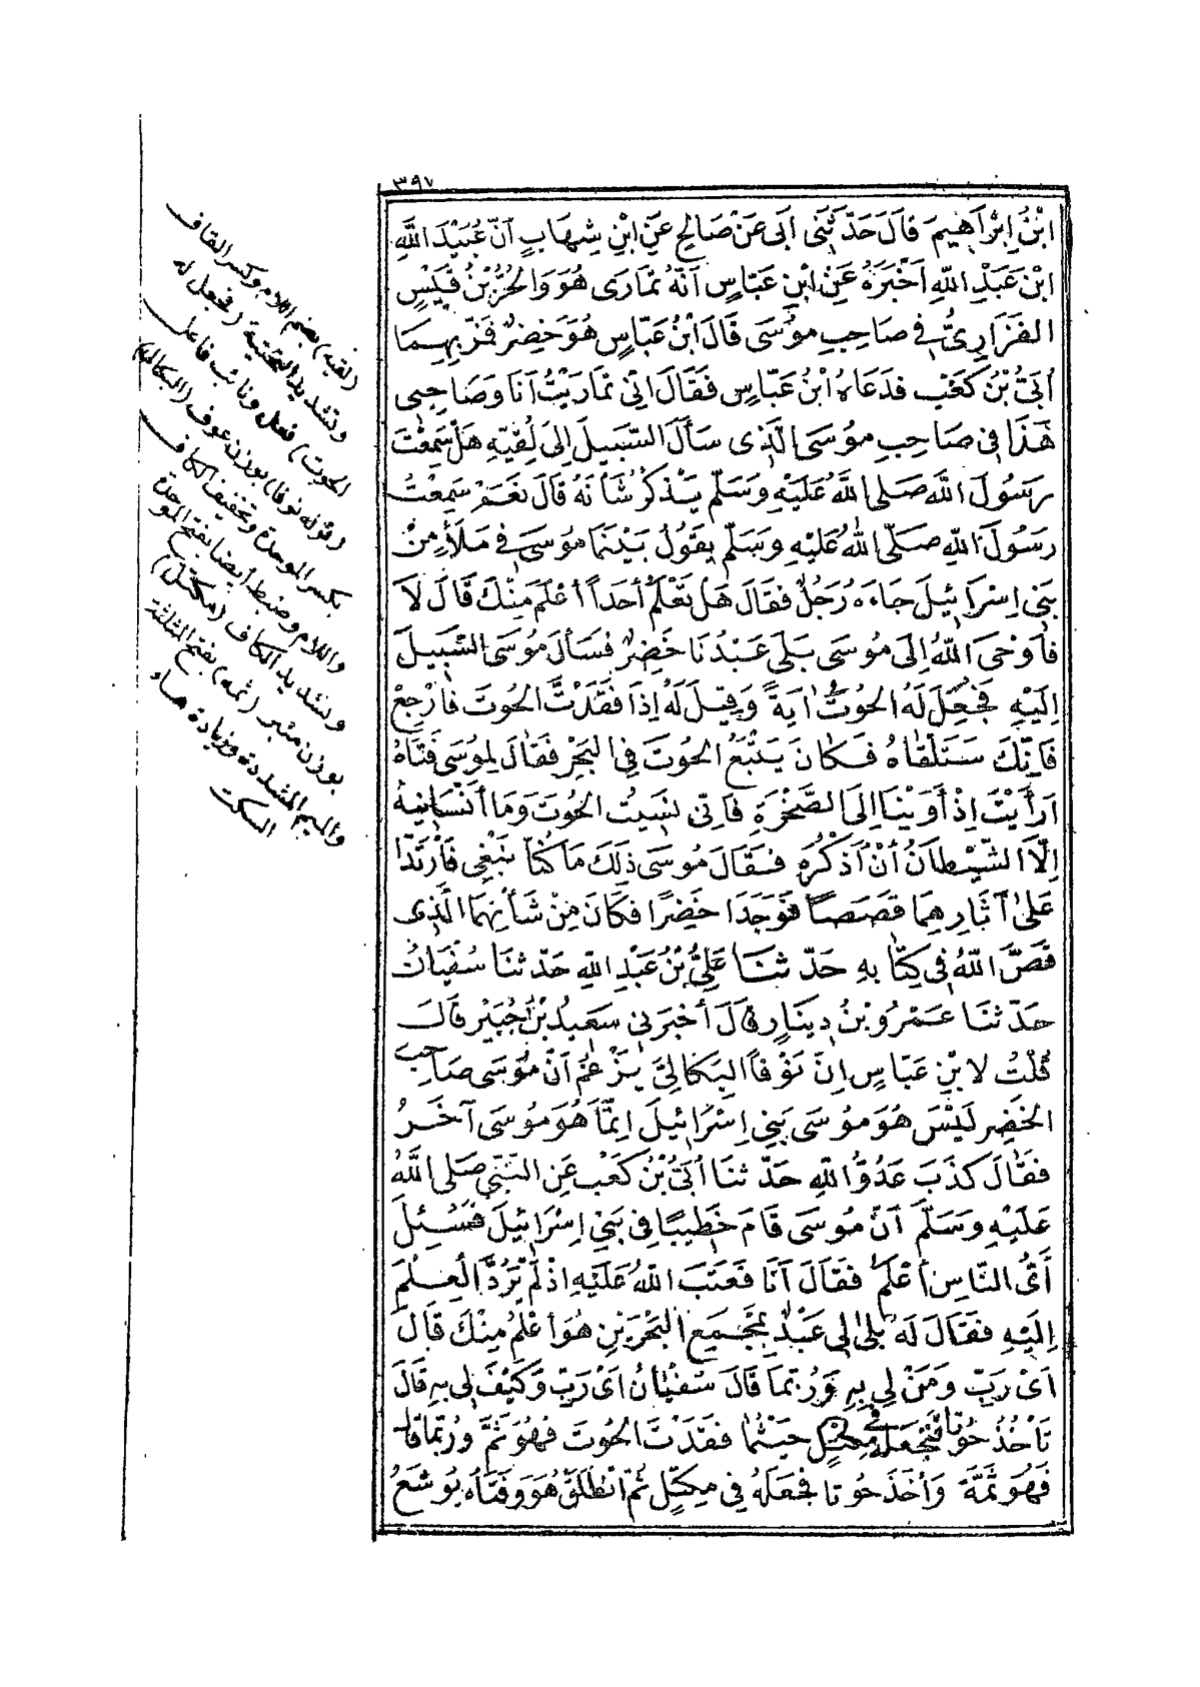 ٣٩٧
ابْنُ اِبْرَاهِيمَ قَالَ حَدَّثَنِى اَبِى عَنْ صَالِحٍ عَنِ ابْنِ شِهَابٍ اَنَّ عُبَيْدَ اللّٰهِ
ابْنَ عَبْدِ اللّٰهِ اَخْبَرَهُ عَنِ ابْنِ عَبَّاسٍ اَنَّهُ تَمَارَى هُوَ وَالْحُرُّ بْنُ قَيْسٍ
الفَزَارِىُّ فِى صَاحِبِ مُوسَى قَالَ ابْنُ عَبَّاسٍ هُوَ خَضِرٌ فَمَرَّ بِهِمَا
اُبَىُّ بْنُ كَعْبٍ فَدَعَاهُ ابْنُ عَبَّاسٍ فَقَالَ اِنِّى تَمَارَيْتُ اَنَا وَصَاحِبِى
هٰذَا فِى صَاحِبِ مُوسَى الَّذِى سَأَلَ السَّبِيلَ اِلَى لُقِيِّهِ هَلْ سَمِعْتَ
رَسُولَ اللّٰهِ صَلَى اللّٰهُ عَلَيْهِ وَسَلَّمَ يَذْكُرُ شَأْنَهُ قَالَ نَعَمْ سَمِعْتُ
رَسُولَ اللّٰهِ صَلَّى اللّٰهُ عَلَيْهِ وَسَلَّمَ يَقُولُ بَيْنَمَا مُوسَى فِى مَلَأٍ مِنْ
بَنِى اِسْرَائِيلَ جَاءَهُ رَجُلٌ فَقَالَ هَلْ تَعْلَمُ أَحَداً أَعْلَمَ مِنْكَ قَالَ لَا
فَأَوْحَى اللّٰهُ اِلَى مُوسَى بَلَى عَبْدُنَا خَضِرٌ فَسَأَلَ مُوسَى السَّبِيلَ
اِلَيْهِ فَجُعِلَ لَهُ الحُوتُ اٰيَةً وَقِيلَ لَهُ اِذَا فَقَدْتَّ الحُوتَ فَارْجِعْ
فَاِنَّكَ سَتَلْقَاهُ فَكَانَ يَتْبَعُ الحُوتَ فِى البَحْرِ فَقَالَ لِمُوسَى فَتَاهُ
اَرَأَيْتَ اِذْ أَوَيْنَا اِلَى الصَّخْرَةِ فَاِنِّى نَسِيتُ الحُوتَ وَمَا أَنْسَانِيهُ
اِلَّا الشَّيْطَانُ أَنْ أَذْكُرَهُ فَقَالَ مُوسَى ذٰلِكَ مَا كُنَّا نَبْغِى فَارْتَدَّا
عَلَى آثَارِهِمَا قَصَصًا فَوَجَدَا خَضِرًا فَكَانَ مِنْ شَأْنِهِمَا الَّذِى
قَصَّ اللّٰهُ فِى كِتَابِهِ حَدَّثَنَا عَلِىُّ بْنُ عَبْدِ اللّٰهِ حَدَّثَنَا سُفْيَانُ
حَدَّثَنَا عَمْرُو بْنُ دِينَارٍ قَالَ أَخْبَرَنِى سَعِيدُ بْنُ جُبَيْرٍ قَالَ
قُلْتُ لِابْنِ عَبَّاسٍ اِنَّ نَوْفاً البِكَالِىَّ يَزْعُمُ اَنَّ مُوسَى صَاحِبَ
الخَضِرِ لَيْسَ هُوَ مُوسَى بَنِى اِسْرَائِيلَ اِنَّمَا هُوَ مُوسَى آخَرُ
فَقَالَ كَذَبَ عَدُوُّ اللّٰهِ حَدَّثَنَا اُبَىُّ بْنُ كَعْبٍ عَنِ النَّبِىِّ صَلَى اللّٰهُ
عَلَيْهِ وَسَلَّمَ اَنَّ مُوسَى قَامَ خَطِيبًا فِى بَنِى اِسْرَائِيلَ فَسُئِلَ
أَىُّ النَّاسِ أَعْلَمُ فَقَالَ اَنَا فَعَتَبَ اللّٰهُ عَلَيْهِ اِذْ لَمْ يَرُدَّ العِلْمَ
اِلَيْهِ فَقَالَ لَهُ بَلَى لِى عَبْدٌ بِمَجْمَعِ البَحْرَيْنِ هُوَ أَعْلَمُ مِنْكَ قَالَ
اَىْ رَبِّ وَمَنْ لِى بِهِ وَرُبَّمَا قَالَ سُفْيَانُ اَىْ رَبِّ وَكَيْفَ لِى بِهِ قَالَ
تَأْخُذُ حُوتًا فَتَجْعَلُهُ فِى مِكْتَلٍ حَيْثُمَا فَقَدْتَ الحُوتَ فَهُوَ ثَمَّ وَرُبَّمَا قَالَ
فَهُوَ ثَمَّهْ وَأَخَذَ حُوتًا فَجَعَلَهُ فِى مِكْتَلٍ ثُمَّ انْطَلَقَ هُوَ وَفَتَاهُ يُوشَعُ
(لقيه) بضم اللام وكسر القاف
وتشديد التحتية (فجعل له
الحوت) فعل ونائب فاعل
وقوله نوفا بوزن عوف (البكالى)
بكسر الموحدة وتخفيف الكاف
واللام وضبط أيضا بفتح الموحدة
وتشديد الكاف (مكتل)
بوزن منبر (ثمه) بفتح المثلثة
والميم المشددة وزيادة هاء
السكت